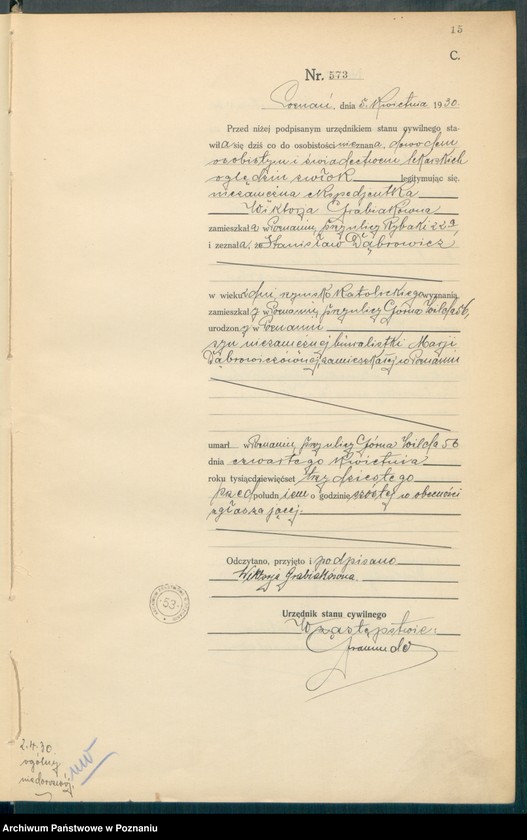 15
C.
Nr. 573
Poznań, dnia 5. Kwietnia 1930.
Przed niżej podpisanym urzędnikiem stanu cywilnego sta-
wiła się dziś co do osobistości nieznana, dowodem
osobistym i świadectwem lekarskich
oględzin zwłok legitymując się,
niezamężna ekspedjentka
Wiktorja Grabiakówna
zamieszkała w Poznaniu, przy ulicy Rybaki 22a
i zeznała, że Stanisław Dąbrowicz
w wieku 2 dni, rzymsko katolickiego wyznania
zamieszkały w Poznaniu, przy ulicy Górna Wilda 56,
urodzony w Poznaniu
syn niezamężnej biuralistki Marji
Dąbrowiczównej, zamieszkałej w Poznaniu
umarł w Poznaniu, przy ulicy Górna Wilda 56
dnia czwartego Kwietnia
roku tysiącdziewięćset trzydziestego
przed południem o godzinie szóstej w obecności
zgłaszającej.
Odczytano, przyjęto i podpisano
Wiktorja Grabiakówna.
Urzędnik stanu cywilnego
W zastępstwie:
53
2.4.30.
ogólny
niedorozwój
Archiwum Państwowe w Poznaniu